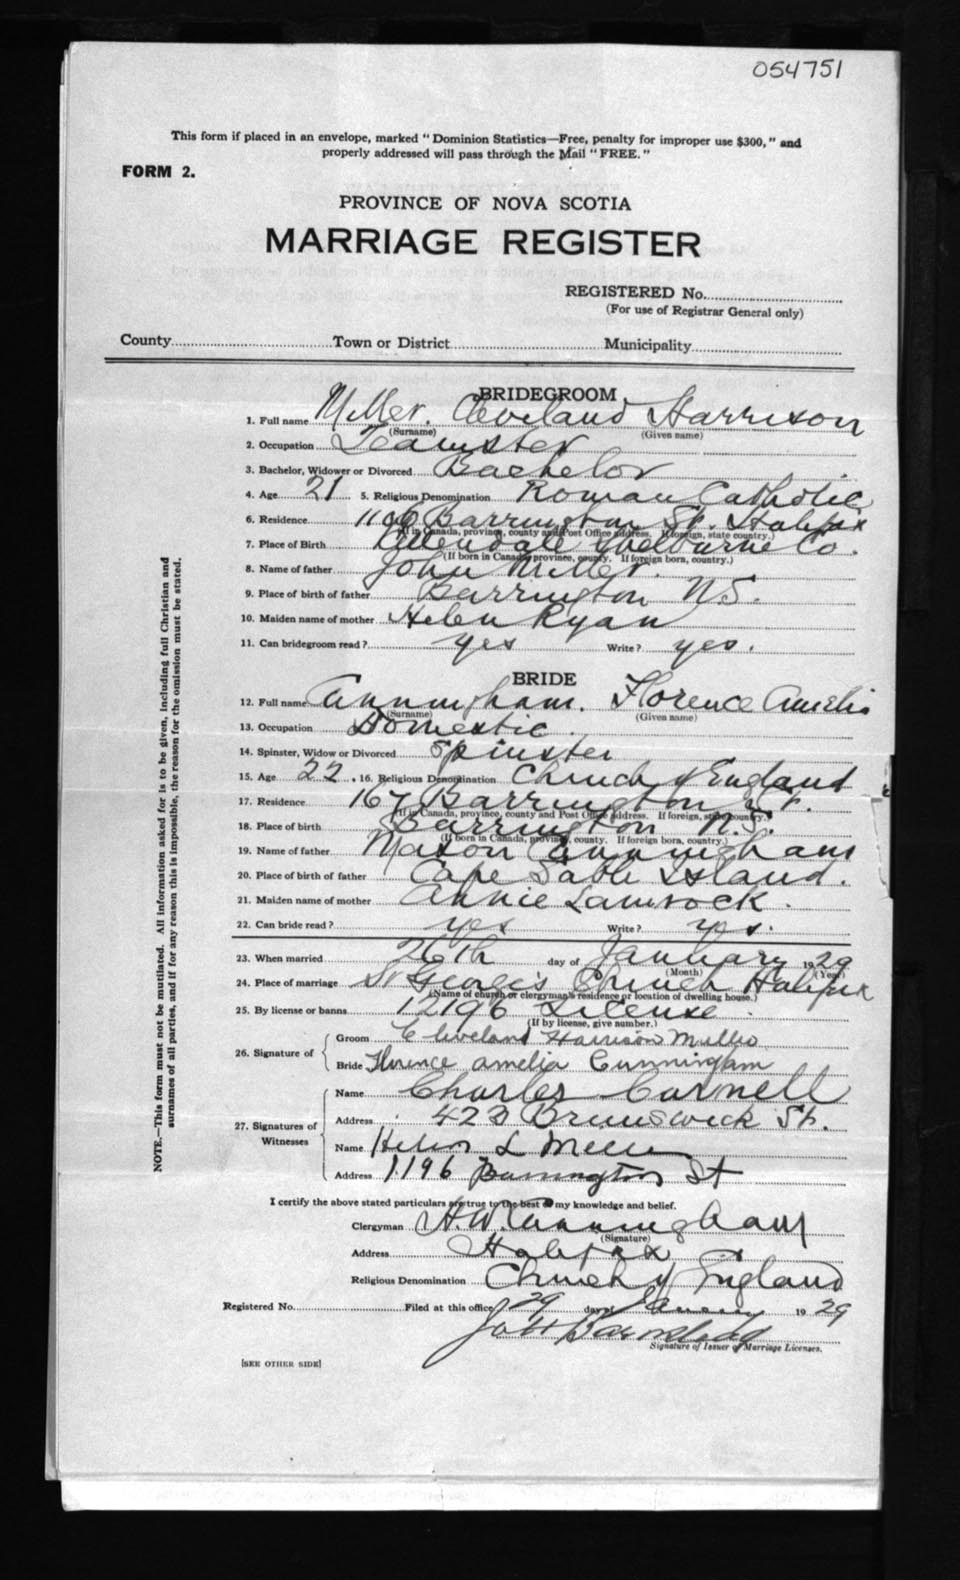 054751
This form if placed in an envelope, marked "Dominion Statistics—Free, penalty for improper use $300," and
properly addressed will pass through the Mail "FREE."
FORM 2.
PROVINCE OF NOVA SCOTIA
MARRIAGE REGISTER
REGISTERED No.
(For use of Registrar General only)
County Town or District Municipality
BRIDEGROOM
1. Full name Miller. Cleveland Harrison
(Surname) (Given name)
2. Occupation Teamster
3. Bachelor, Widower or Divorced Bachelor
4. Age 21 5. Religious Denomination Roman Catholic
6. Residence Barrington St. Halifax
(If in Canada, province, county and Post Office address. If foreign, state country.)
7. Place of Birth Allendale Shelburne Co.
(If born in Canada, province, county. If foreign born, country.)
8. Name of father John Miller.
9. Place of birth of father Barrington N.S.
10. Maiden name of mother Helen Ryan
11. Can bridegroom read? yes Write? yes.
BRIDE
12. Full name Cunningham. Florence Amelia
(Surname) (Given name)
13. Occupation Domestic.
14. Spinster, Widow or Divorced Spinster
15. Age 22. 16. Religious Denomination Church of England
17. Residence 167 Barrington St.
(If in Canada, province, county and Post Office address. If foreign, state country.)
18. Place of birth Barrington N.S.
(If born in Canada, province, county. If foreign born, country.)
19. Name of father Mason Cunningham
20. Place of birth of father Cape Sable Island.
21. Maiden name of mother Annie Lamrock.
22. Can bride read? yes Write? yes.
23. When married 26th day of January 1929
(Month) (Year)
24. Place of marriage St George's Church Halifax
(Name of church or clergyman's residence or location of dwelling house.)
25. By license or banns 12196 License.
(If by license, give number.)
26. Signature of
Groom Cleveland Harrison
Bride Florence Amelia Cunningham
27. Signatures of Witnesses
Name Charles Carnell
Address 423 Brunswick St.
Name L
Address 1196 Barrington St
I certify the above stated particulars are true to the best of my knowledge and belief.
Clergyman H.W. Cunningham
(Signature)
Address Halifax
Religious Denomination Church of England
Registered No. Filed at this office 29 day of January 1929
Signature of Issuer of Marriage Licenses.
[SEE OTHER SIDE]
NOTE.—This form must not be mutilated. All information asked for is to be given, including full Christian and
surnames of all parties, and if for any reason this is impossible, the reason for the omission must be stated.